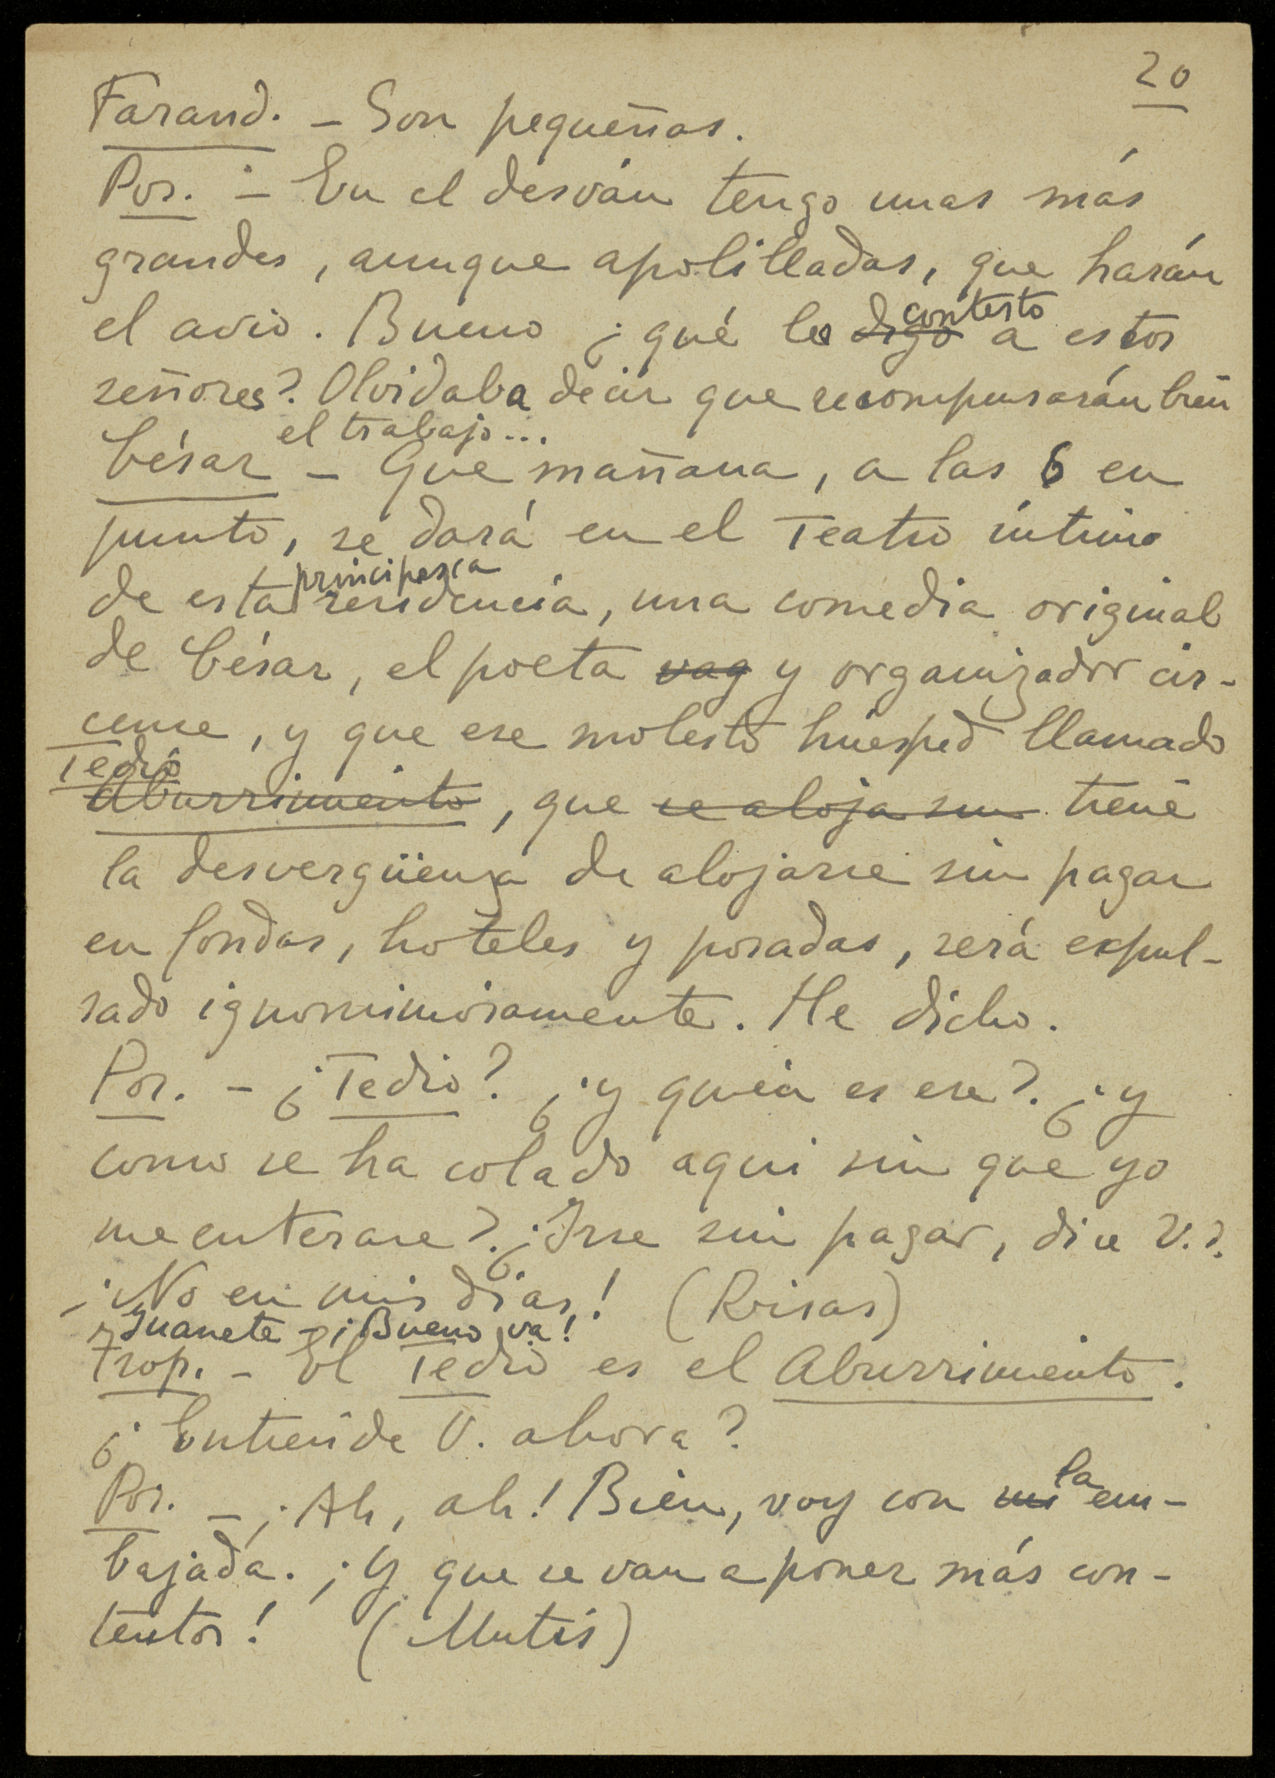 20
Farand. - Son pequeñas.
Pos. - En el desván tengo unas más
grandes, aunque apolilladas, que harán
el avio. Bueno ¿qué les digo contesto a estos
señores? Olvidaba decir que recompensarán bien
el trabajo...
César - Que mañana, a las 6 en
punto, se dará en el Teatro íntimo
de esta principesca residencia, una comedia original
de César, el poeta vag y organizador cir-
cense, y que ese molesto huésped llamado
Tedio
Aburrimiento, que se aloja sin tiene
la desvergüenza de alojarse sin pagar
en fondas, hoteles y posadas, será expul-
sado ignominiosamente. He dicho.
Pos. - ¿Tedio? ¿y quien es ese? ¿y
como se ha colado aqui sin que yo
me enterase? ¿Irse sin pagar, dice V.?
¡No en mis días! (Risas)
Juanete - ¡Bueno va!
Trop. - El Tedio es el Aburrimiento.
¿Entiende V. ahora?
Pos. - ¡Ah, ah! Bien, voy con mi la em-
bajada. ¡Y que se van a poner más con-
tentos! (Mutis)